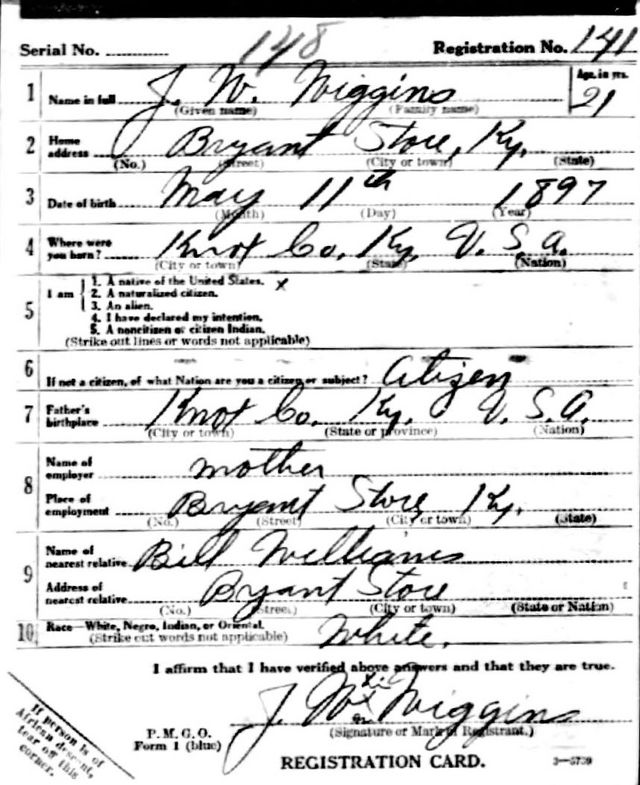 Serial No. 148 Registration No. 141
1 Name in full J. W. Wiggins Age, in yrs. 21
(Given name) (Family name)
2 Home address Bryant Store, Ky.
(No.) (Street) (City or town) (State)
3 Date of birth May 11th 1897
(Month) (Day) (Year)
4 Where were you born? Knot Co. Ky. U. S. A.
(City or town) (State) (Nation)
5 I am
1. A native of the United States. x
2. A naturalized citizen.
3. An alien.
4. I have declared my intention.
5. A noncitizen or citizen Indian.
(Strike out lines or words not applicable)
6 If not a citizen, of what Nation are you a citizen or subject? Citizen
7 Father's birthplace Knot Co. Ky. U. S. A.
(City or town) (State or province) (Nation)
8 Name of employer mother
Place of employment Bryant Store Ky.
(No.) (Street) (City or town) (State)
9 Name of nearest relative Bill Williams
Address of nearest relative Bryant Store
(No.) (Street) (City or town) (State or Nation)
10 Race—White, Negro, Indian, or Oriental. White.
(Strike out words not applicable)
I affirm that I have verified above answers and that they are true.
J. W. Wiggins
x
P. M. G. O.
Form 1 (blue)
(Signature or Mark of Registrant.)
REGISTRATION CARD. 3—5739
If person is of
African descent,
tear off this
corner.